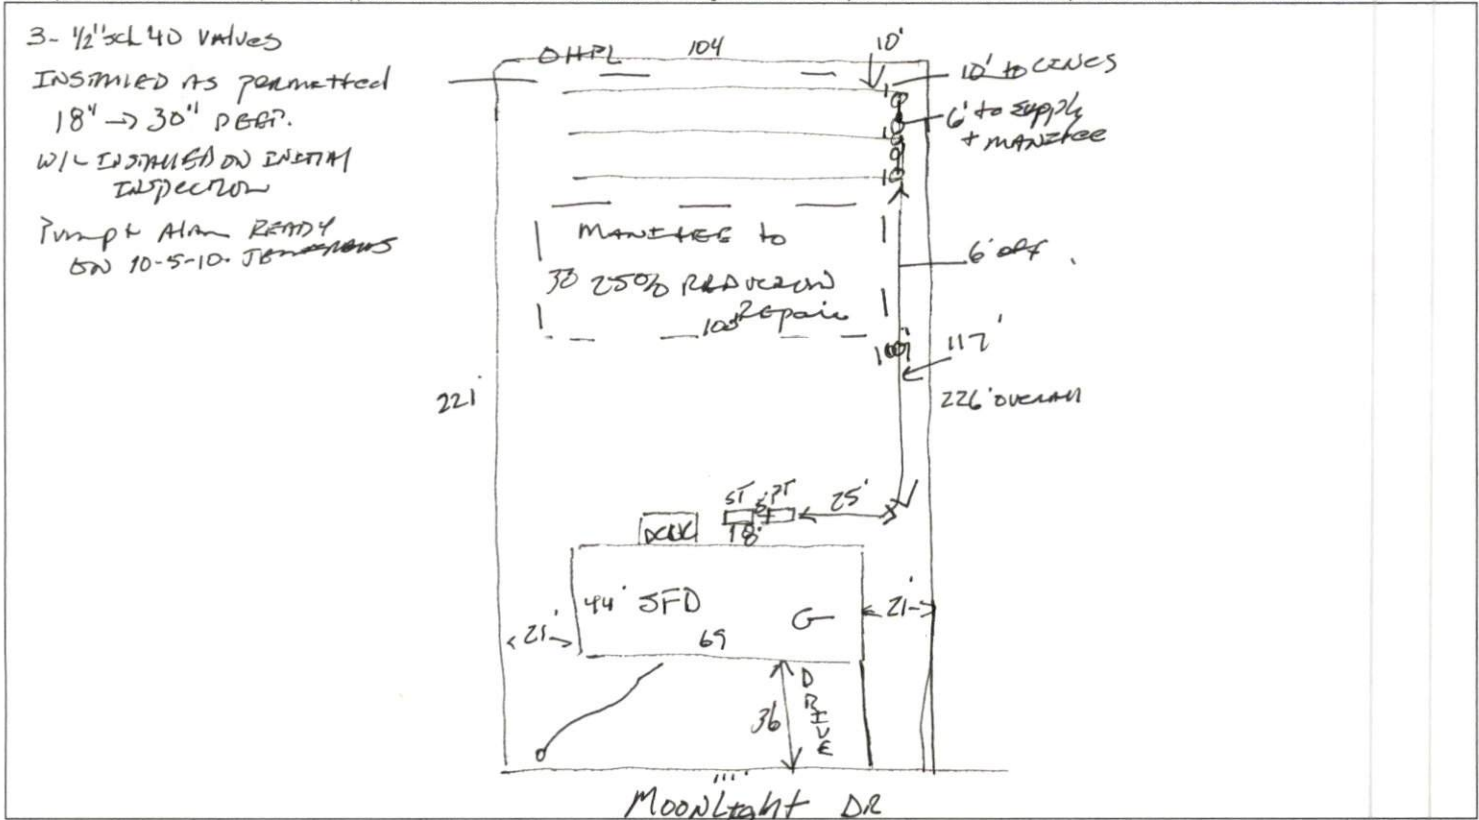 3- 1/2" sch 40 VALVES
INSTALLED AS permetted
18" → 30" DEEP.
W/L INSTALLED ON INITIAL
INSPECTION
Pump & Alarm READY
ON 10-5-10.
OHPL 104 10'
10' to LINES
6' to supply
+ MANIFEE
MANIFEE to
25% REDUCTION
REpair
6' off
100'
117'
221'
226' OVERALL
ST 5' PT 25'
DECK 18'
44' SFD G
21' 69 21'
36 DRIVE
MOONLIGHT DR